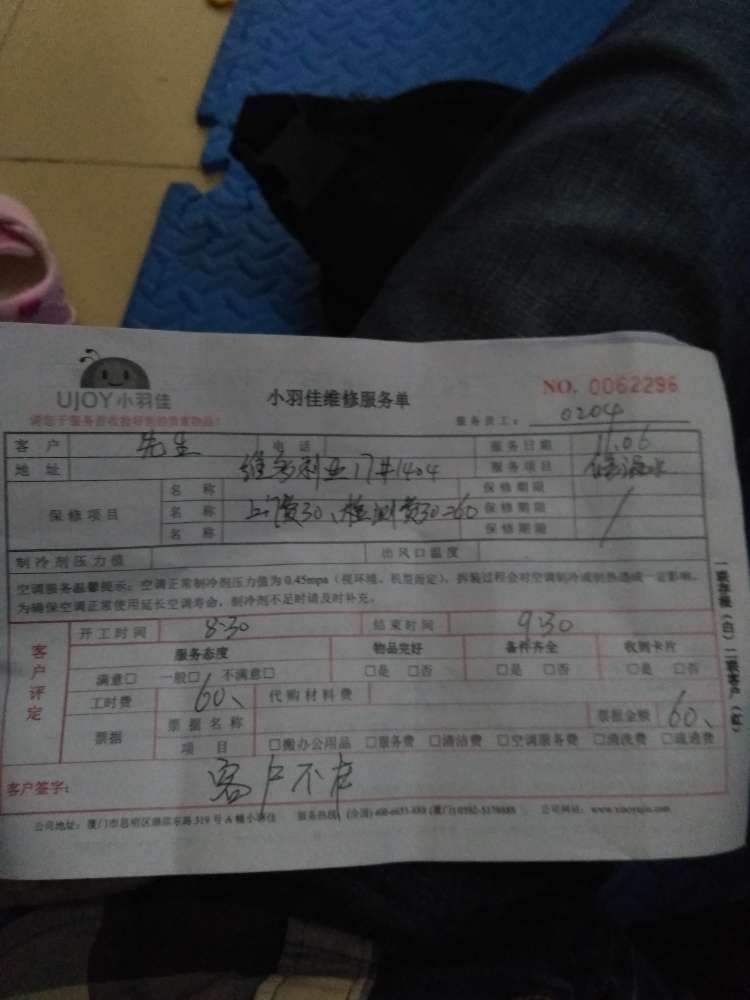 UJOY小羽佳
小羽佳维修服务单
NO. 0062296
请您于服务前收捡好您的贵重物品！
服务员工： 0204
客户 先生 电话 服务日期 11.06
地址 维多利亚17#1404 服务项目 修漏水
保修项目 名称 保修期限
名称 上门费30、检测费30=60 保修期限
名称 保修期限
制冷剂压力值 出风口温度
空调服务温馨提示：空调正常制冷剂压力值为0.45mpa（视环境、机型而定），拆装过程会对空调制冷或制热造成一定影响，
为确保空调正常使用延长空调寿命，制冷剂不足时请及时补充。
客户评定
开工时间 8:30 结束时间 9:30
服务态度 物品完好 备件齐全 收到卡片
满意□ 一般□ 不满意□ □是 □否 □是 □否 □是 □否
工时费 60、 代购材料费
票据 票据名称 票据金额 60、
项目 □搬办公用品 □服务费 □清洁费 □空调服务费 □清洗费 □疏通费
客户签字： 客户不在
服务热线 (全国) 400-6633-888 (厦门) 0592-5178888
公司网址：www.xiaoyujia.com
一联存根（白）二联客户（红）